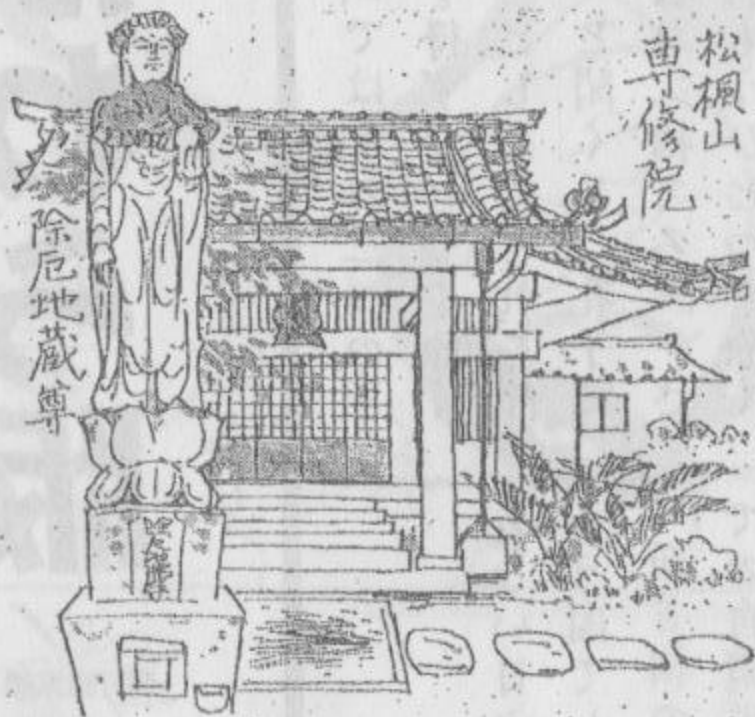 松楓山
専修院
除厄地蔵尊